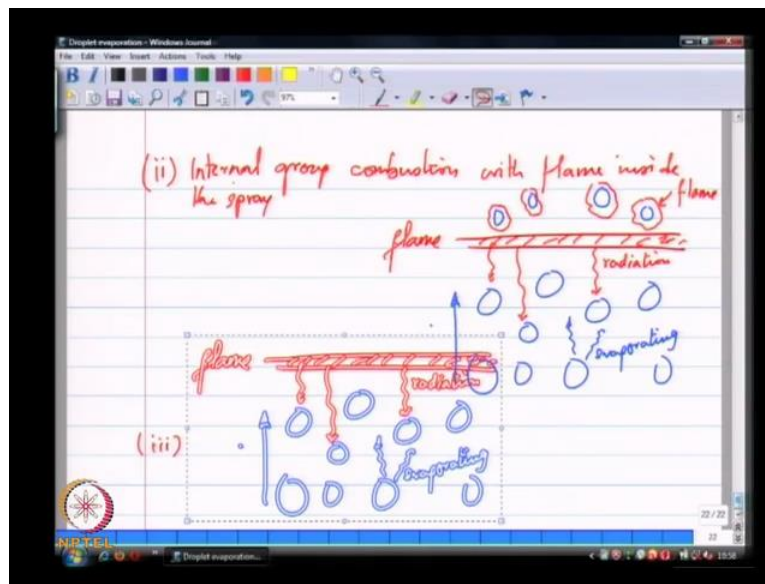 Droplet evaporation - Windows Journal
File Edit View Insert Actions Tools Help
B I
97%
(ii) Internal group combustion with flame inside
the spray
flame
flame
radiation
evaporating
flame
radiation
(iii)
evaporating
22 / 22
22
NPTEL
Droplet evaporation...
10:58